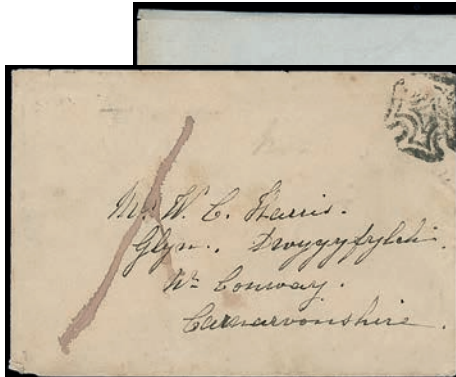 Mr. W. C. Harris.
Glyn. Dwygyfylchi.
Nr. Conway.
Carnarvonshire.